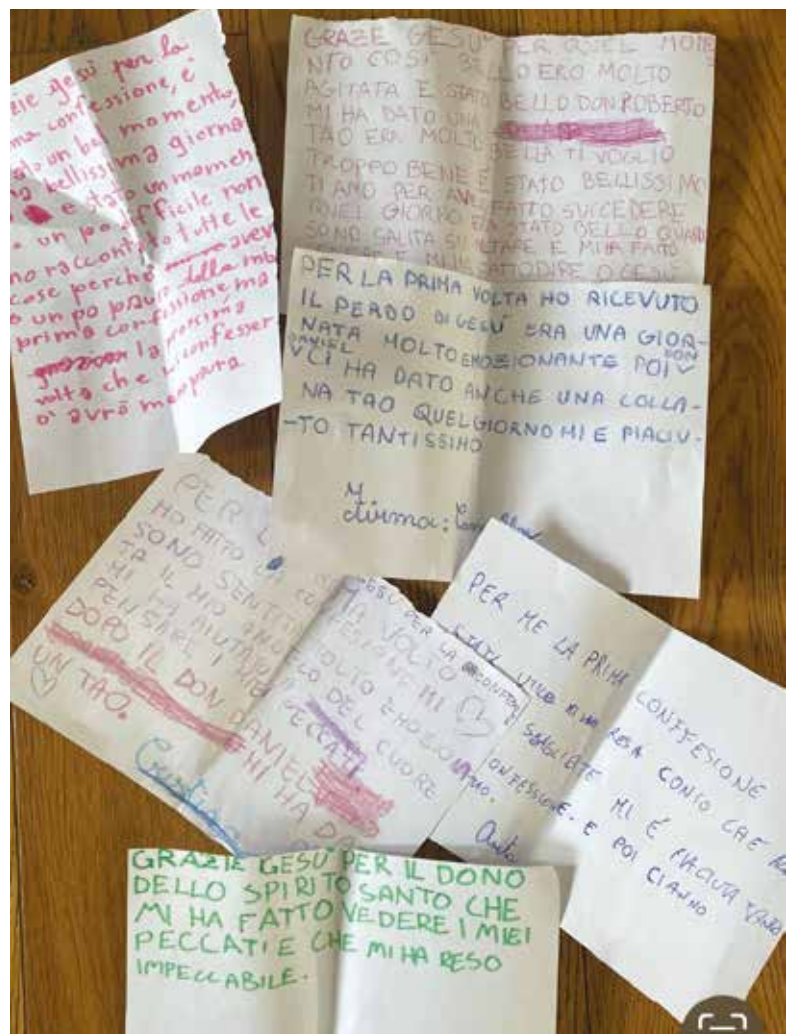 gesù per la
confessione, è
un bel momento,
bellissima giorna
e stato un momen
un po difficile non
raccontato tutte le
cose perchè avev
un po paura della mia
prima confessione ma
la prossima
volta che mi confesser
ò avrò meno paura
GRAZE GESU' PER QUEL MOME
NTO COSI BELLO ERO MOLTO
AGITATA E STATO BELLO DON ROBERTO
MI HA DATO UNA
TAO ERA MOLTO BELLA TI VOGLIO
TROPPO BENE E STATO BELLISSIMO
TI AMO PER AVER FATTO SUCCEDERE
QUEL GIORNO ERA STATO BELLO QUAND
SONO SALITA SU ALTARE E MI HA FATTO
DIRE O GESÙ
PER LA PRIMA VOLTA HO RICEVUTO
IL PERDO DI GESÙ ERA UNA GIOR-
NATA MOLTO EMOZIONANTE POI DON
DANIEL CI HA DATO ANCHE UNA COLLA-
NA TAO QUEL GIORNO MI E PIACIU-
-TO TANTISSIMO
firma:
PER
HO FATTO
SONO SENTIT
TA IL MIO
MI HA AIUTA
PENSARE I
DOPO IL DON DANIEL
MI HA DA
UN TAO.
Cristian
GESU PER LA
VOLTO
MI
MOLTO EMOZIO
DEL CUORE
PECCATI
PER ME LA PRIMA CONFFESIONE
STATA UTILE MI HA RESA CONTO CHE
SBAGLIATE MI È PIACIUTA
CONFESSIONE. E POI CI ANNO
GRAZIE GESU' PER IL DONO
DELLO SPIRITO SANTO CHE
MI HA FATTO VEDERE I MIEI
PECCATI E CHE MI HA RESO
IMPECCABILE.